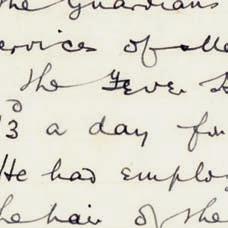 the Guardians
ervices of
the Fever
3d a day for
He had employ
he hair of the